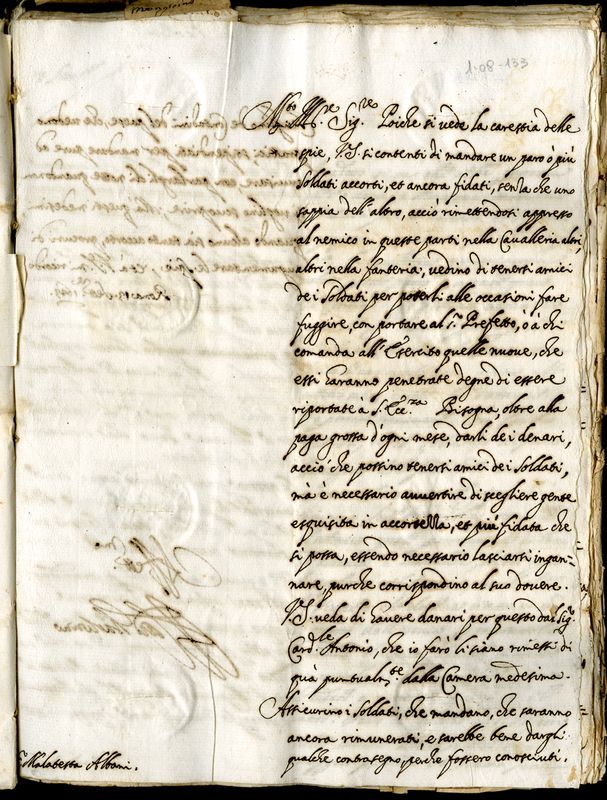 1-08-133
Molto Ill.re Sig.re Poiche si vede la carestia delle
spie, V.S. si contenti di mandare un paro ò più
Soldati accorti, et ancora fidati, senza che uno
sappia dell'altro, acciò rimettendosi appresso
al nemico in queste parti nella Cavalleria altri,
altri nella fanteria, vedino di tenersi amici
de i Soldati per poterli alle occasioni fare
fuggire, con portare al S.r Prefetto, ò à chi
comanda all'Esercito quelle nuove, che
essi haranno penetrate degne di essere
riportate à S. Ecc.za Bisogna, oltre alla
paga grossa d'ogni mese, darli de i denari,
acciò che possino tenersi amici de i Soldati,
mà è necessario avvertire di scegliere gente
esquisita in accortezza, et più fidata che
si possa, essendo necessario lasciarsi ingan-
nare, purche corrispondino al suo dovere.
V.S. veda di havere danari per questo dal Sig.r
Card.le Antonio, che io farò li siano rimessi di
quà puntualm.te dalla Camera medesima.
Assicurino i Soldati, che mandano, che saranno
ancora rimunerati, e sarebbe bene dargli
qualche contrasegno, perche fossero conosciuti.
Malatesta Albani.